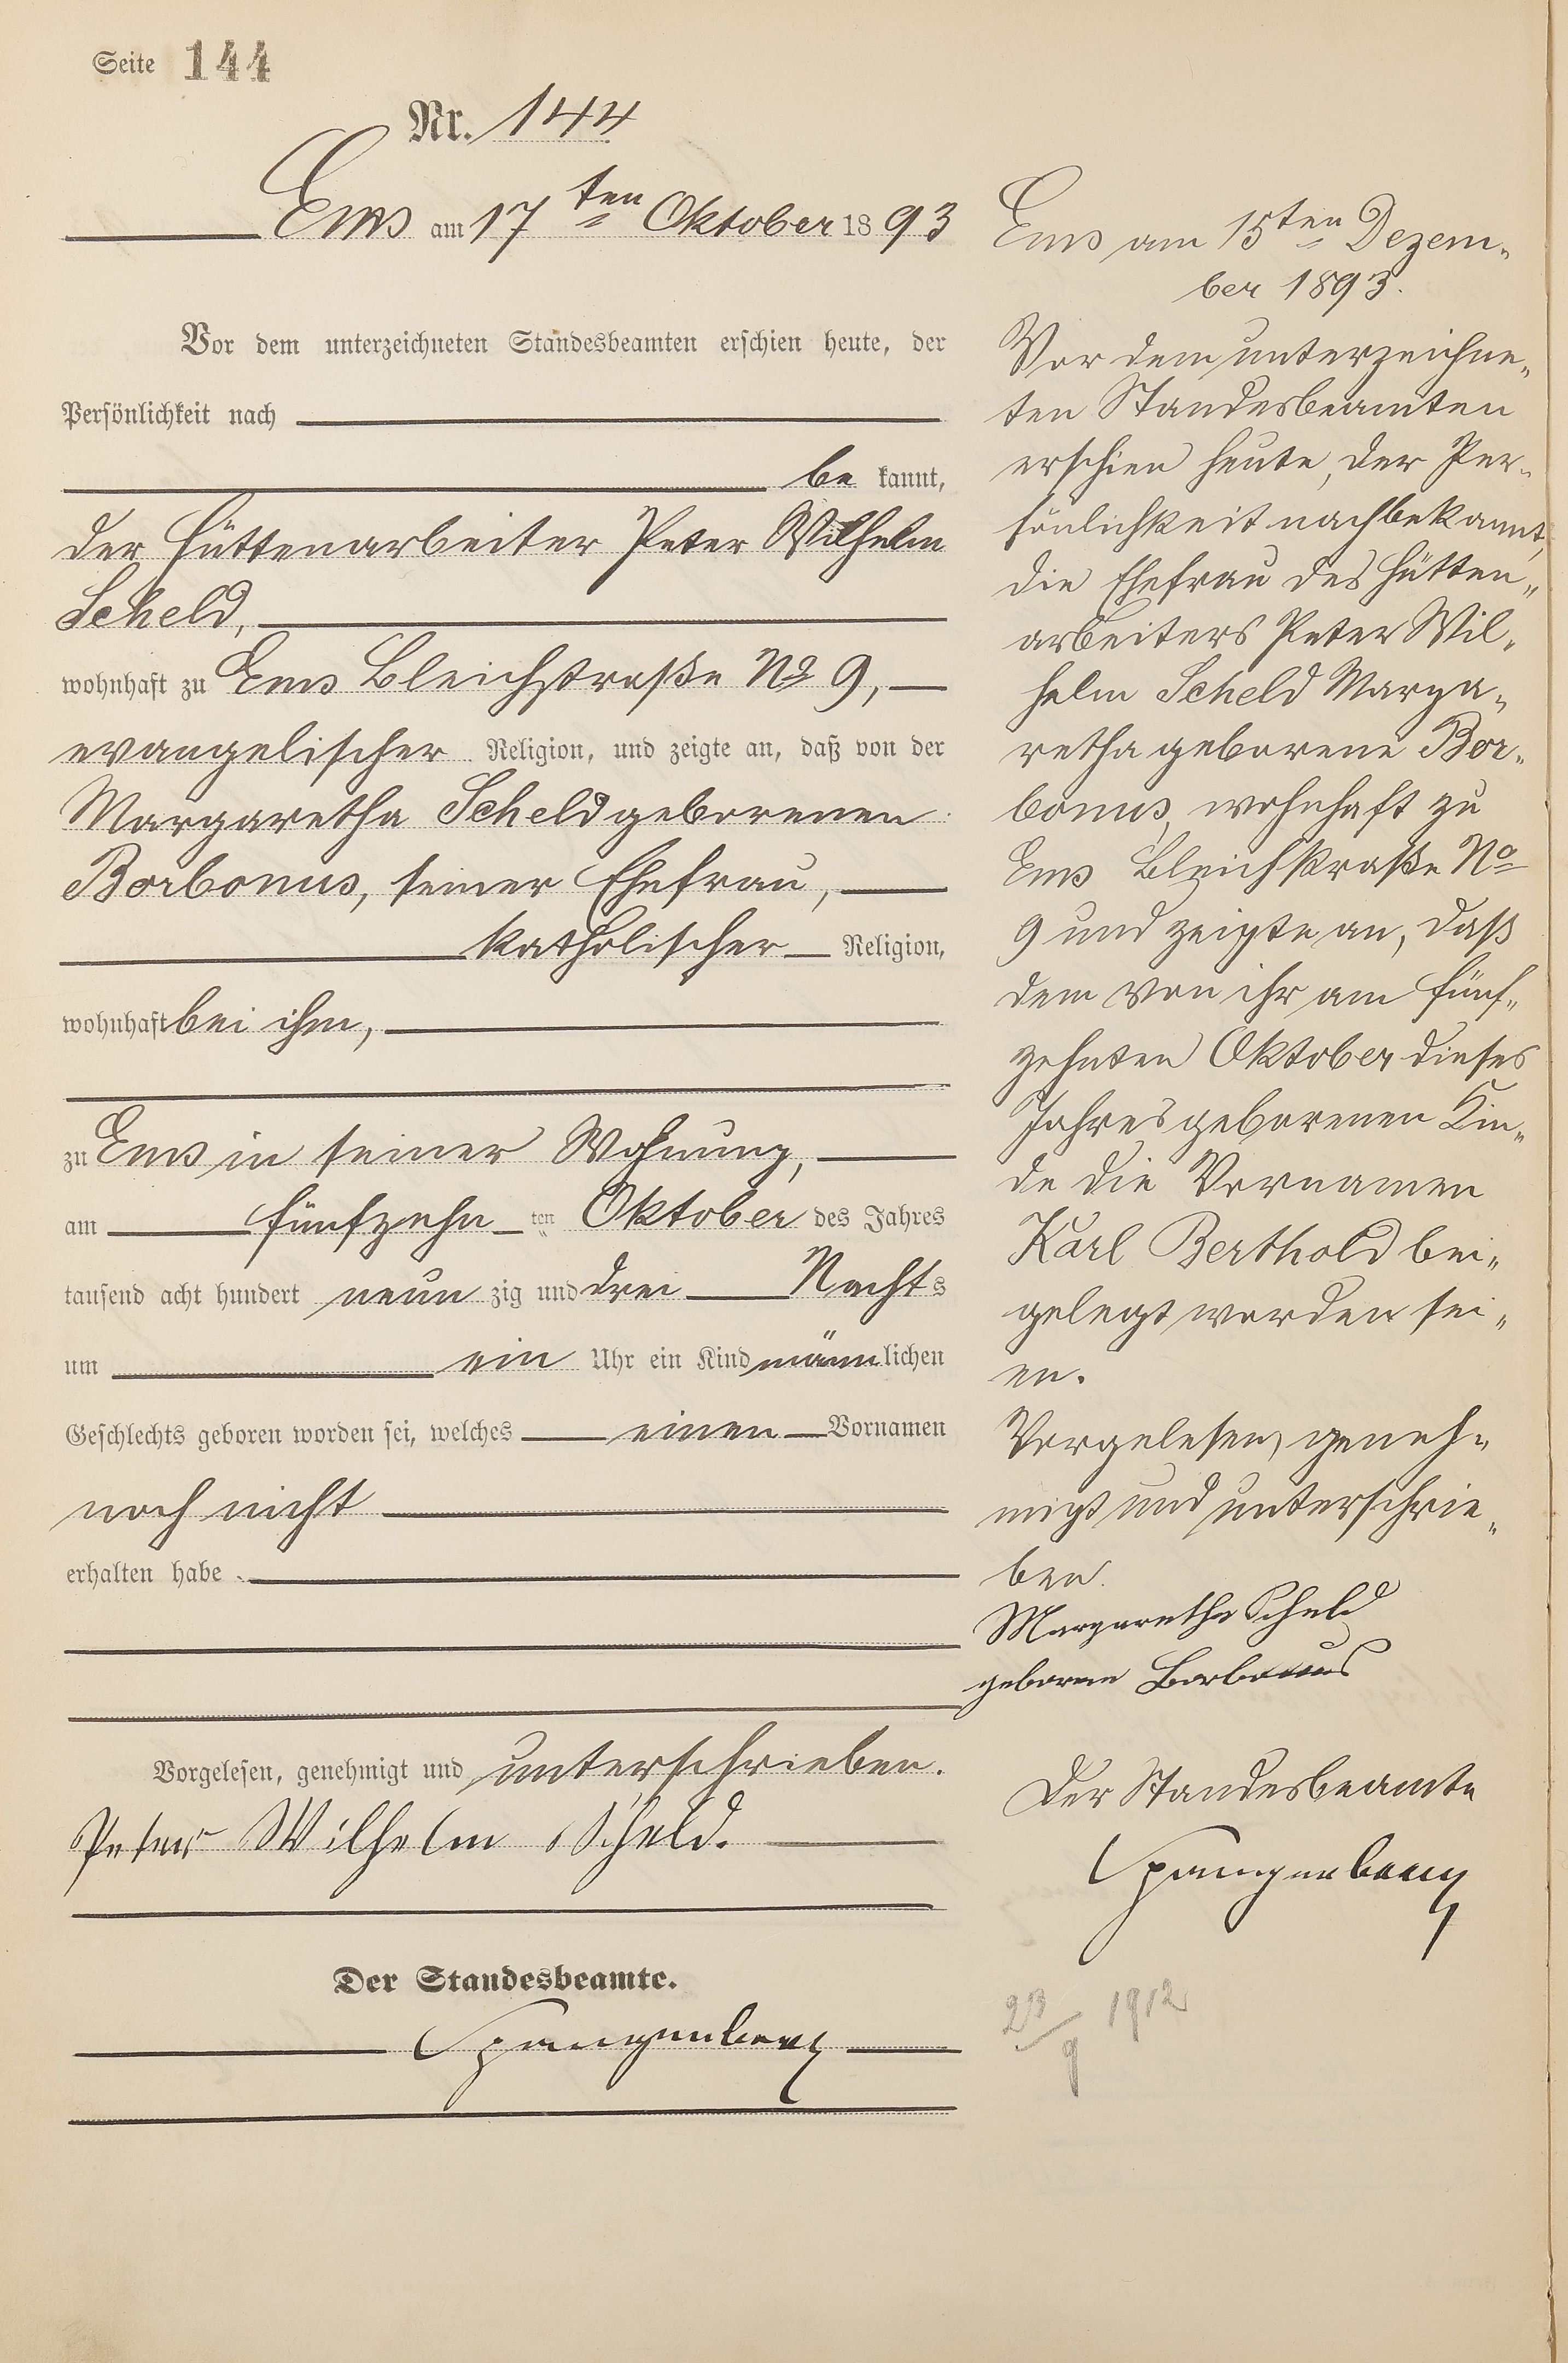 Seite 144
Nr. 144
Ems am 17ten Oktober 1893
Vor dem unterzeichneten Standesbeamten erschien heute, der
Persönlichkeit nach
be kannt,
der Hüttenarbeiter Peter Wilhelm
Scheld,
wohnhaft zu Ems Bleichstraße No 9,
evangelischer Religion, und zeigte an, daß von der
Margaretha Scheld geborenen
Borbonus, seiner Ehefrau,
katholischer Religion,
wohnhaft bei ihm,
zu Ems in seiner Wohnung,
am fünfzehn ten Oktober des Jahres
tausend acht hundert neun zig und drei Nachts
um ein Uhr ein Kind männlichen
Geschlechts geboren worden sei, welches einen Vornamen
noch nicht
erhalten habe.
Vorgelesen, genehmigt und unterschrieben.
Peter Wilhelm Scheld.
Der Standesbeamte.
Spangenberg
Ems am 15ten Dezem-
ber 1893.
Vor dem unterzeichne-
ten Standesbeamten
erschien heute, der Per-
sönlichkeit nach bekannt,
die Ehefrau des Hütten-
arbeiters Peter Wil-
helm Scheld Marga-
retha geborene Bor-
bonus, wohnhaft zu
Ems Bleichstraße No
9 und zeigte an, daß
dem von ihr am fünf-
zehnten Oktober dieses
Jahres geborenen Kin-
de die Vornamen
Karl Berthold bei-
gelegt worden sei-
en.
Vorgelesen, geneh-
migt und unterschrie-
ben.
Margaretha Scheld
geborene Borbonus
Der Standesbeamte
Spangenberg
23/9 1912